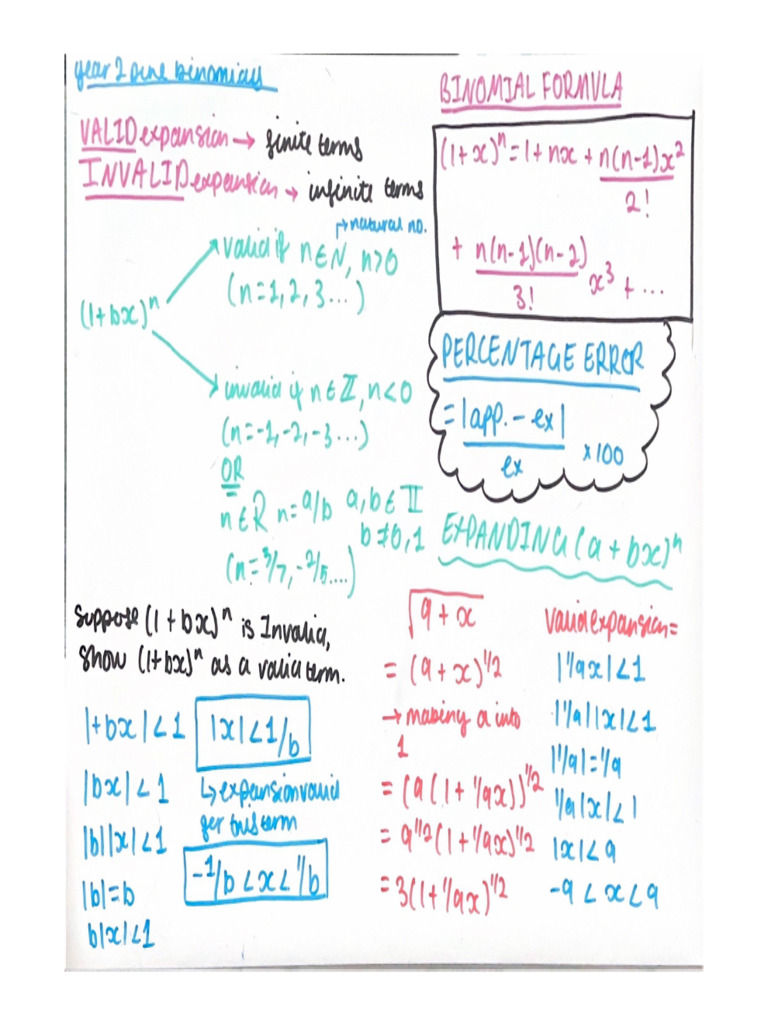 year 2 pure binomials
VALID expansion → finite terms
INVALID expansion → infinite terms
(1+bx)ⁿ
→ natural no.
valid if n∈N, n>0
(n=1,2,3...)
invalid if n∈ℤ, n<0
(n=-1,-2,-3...)
OR
n∈R n=a/b a,b∈ℤ
b≠0,1
(n=3/7,-2/5....)
suppose (1+bx)ⁿ is Invalid,
show (1+bx)ⁿ as a valid term.
|+bx|<1
|bx|<1
|b||x|<1
|b|=b
b|x|<1
|x|<1/b
↳ expansion valid
for this term
-1/b<x<1/b
BINOMIAL FORMULA
(1+x)ⁿ=1+nx+n(n-1)x²
2!
+ n(n-1)(n-2) x³ + ...
3!
PERCENTAGE ERROR
=|app.-ex|
ex ×100
EXPANDING (a+bx)ⁿ
√9+x
=(9+x)^1/2
→ making a into
1
=(9(1+1/9x))^1/2
=9^1/2(1+1/9x)^1/2
=3(1+1/9x)^1/2
valid expansion=
|1/9x|<1
|1/9||x|<1
|1/9|=1/9
1/9|x|<1
|x|<9
-9<x<9